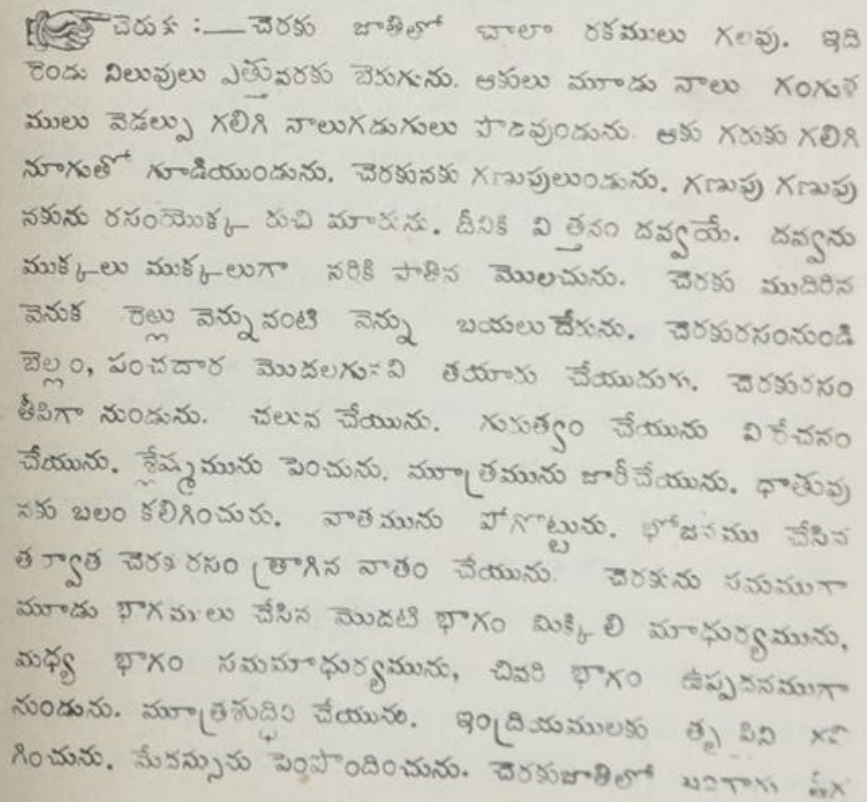 చెరుకు :— చెరకు జాతిలో చాలా రకములు గలవు. ఇది
రెండు నిలువులు ఎత్తువరకు బెరుగును. ఆకులు మూడు నాలు గంగుళ
ములు వెడల్పు గలిగి నాలుగడుగులు పొడవుండును. ఆకు గరుకు గలిగి
నూగుతో గూడియుండును. చెరకునకు గణుపులుండును. గణుపు గణుపు
నకును రసంయొక్క రుచి మారును. దీనికి విత్తనం దవ్వయే. దవ్వను
ముక్కలు ముక్కలుగా నరికి పాతిన మొలచును. చెరకు ముదిరిన
వెనుక రెల్లు వెన్నువంటి వెన్ను బయలుదేరును. చెరకురసంనుండి
బెల్లం, పంచదార మొదలగునవి తయారు చేయుదురు. చెరకురసం
తీపిగా నుండును. చలువ చేయును. గురుత్వం చేయును విరేచనం
చేయును. శ్లేష్మమును పెంచును. మూత్రమును జారీచేయును. ధాతువు
నకు బలం కలిగించును. వాతమును పోగొట్టును. భోజనము చేసిన
తర్వాత చెరకు రసం త్రాగిన వాతం చేయును. చెరకును సమముగా
మూడు భాగములు చేసిన మొదటి భాగం మిక్కిలి మాధుర్యమును,
మధ్య భాగం సమమాధుర్యమును, చివరి భాగం ఉప్పదనముగా
నుండును. మూత్రశుద్ధిని చేయును. ఇంద్రియములకు తృప్తిని
గించును. మేదస్సును పెంపొందించును. చెరకుజాతిలో